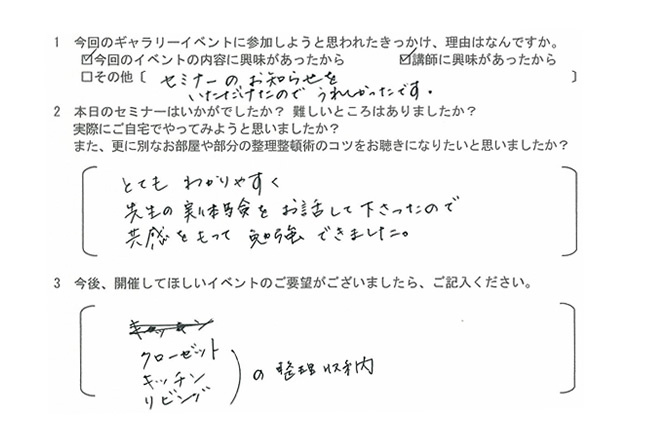 1 今回のギャラリーイベントに参加しようと思われたきっかけ、理由はなんですか。
☑今回のイベントの内容に興味があったから ☑講師に興味があったから
□その他〔 セミナーの、お知らせを 〕
いただけたので うれしかったです。
2 本日のセミナーはいかがでしたか？ 難しいところはありましたか？
実際にご自宅でやってみようと思いましたか？
また、更に別なお部屋や部分の整理整頓術のコツをお聴きになりたいと思いましたか？
とても わかりやすく
先生の実体験をお話して下さったので
共感をもって 勉強できました。
3 今後、開催してほしいイベントのご要望がございましたら、ご記入ください。
クローゼット
キッチン の整理収納
リビング